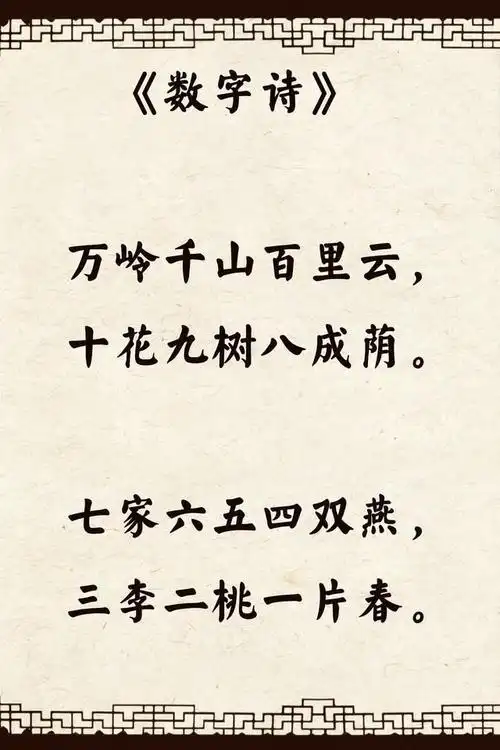 《数字诗》
万岭千山百里云，
十花九树八成荫。
七家六五四双燕，
三李二桃一片春。